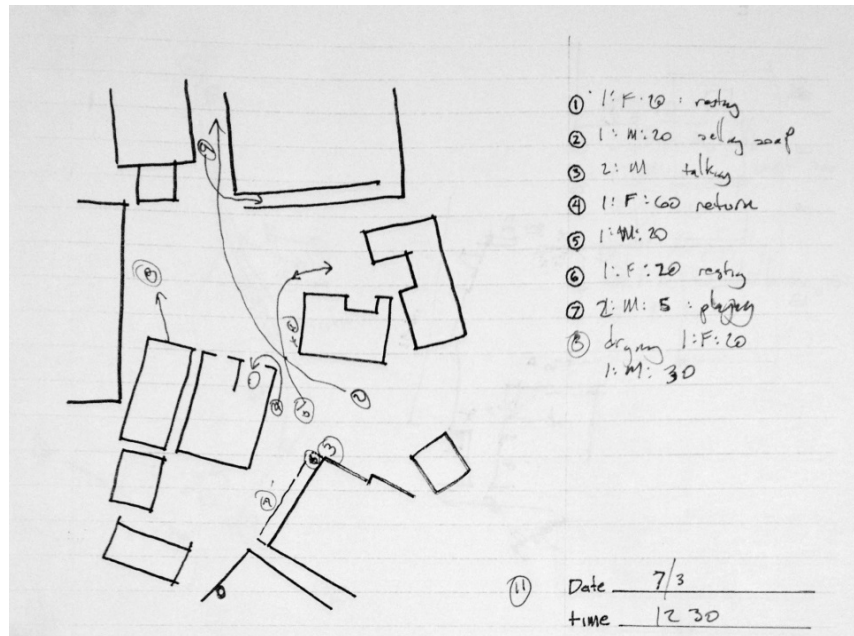 ① 1:F:20: resting
② 1:M:20 selling soap
③ 2:M talking
④ 1:F:60 return
⑤ 1:M:20
⑥ 1:F:20 resting
⑦ 2:M:5: playing
⑧ drying 1:F:20
1:M:30
⑪ Date 7/3
time 12 30